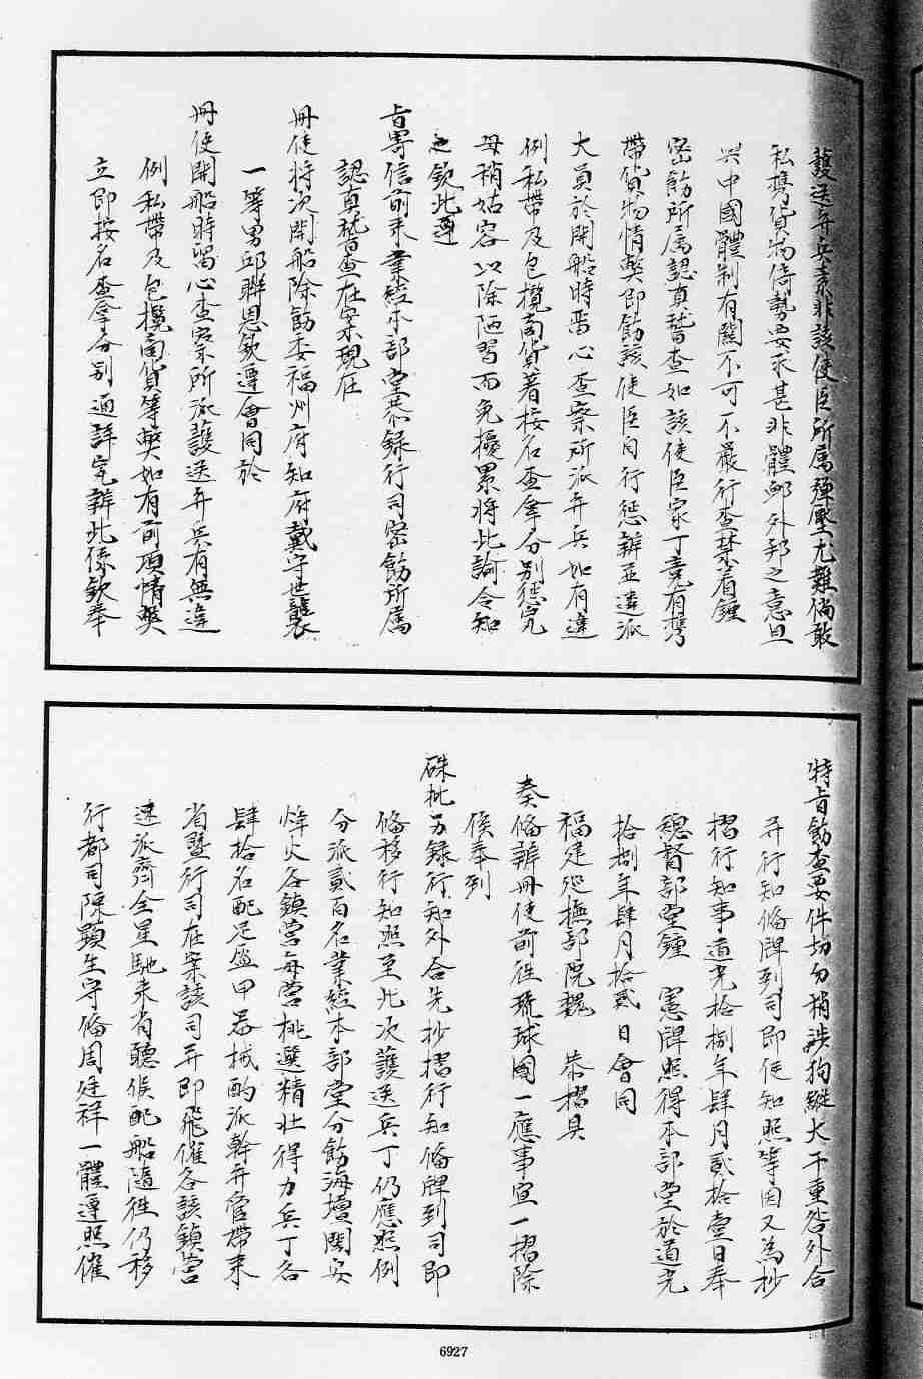 護送弁兵素非該使臣所属彈壓尤難倘敢
私携貨物倚勢要求甚非體邺外邦之意且
與中國體制有關不可不嚴行查禁着鍾
密飭所属認真稽查如該使臣家丁竟有携
帶貨物情獘即飭該使臣自行惩辦並遴派
大員於開船時畱心查察所派弁兵如有違
例私帶及包攬商貨著按名查拿分别惩究
毋稍姑容以除陋習而免擾累將此諭令知
之欽此遵
旨寄信前来業經本部堂恭録行司密飭所属
認真稽查在案現在
冊使將次開船除飭委福州府知府戴守世襲
一等男邱聯恩欽遵會同於
冊使開船時畱心查察所派護送弁兵有無違
例私帶及包攬商貨等獘如有前項情獘
立即按名查拿分别通詳究辦此係欽奉
特旨飭查要件切勿稍涉狥縱大干重咎外合
并行知備牌到司即使知照等因又為抄
摺行知事道光拾捌年肆月貳拾壹日奉
總督部堂鍾 憲牌照得本部堂於道光
拾捌年肆月拾貳日會同
福建廵撫部院魏 恭摺具
奏備辦冊使前徃琉球國一應事宜一摺除
俟奉到
硃批另録行知外合先抄摺行知備牌到司即
備移行知照至此次護送兵丁仍應照例
分派貳百名業經本部堂分飭海壇閩安
烽火各鎮營每營挑選精壯得力兵丁各
肆拾名配足盔甲器械酌派幹弁管帶来
省暨行司在案該司并即飛催各該鎮營
速派齊全星馳来省聽候配船隨徃仍移
行都司陳顯生守備周廷祥一體遵照催
6927